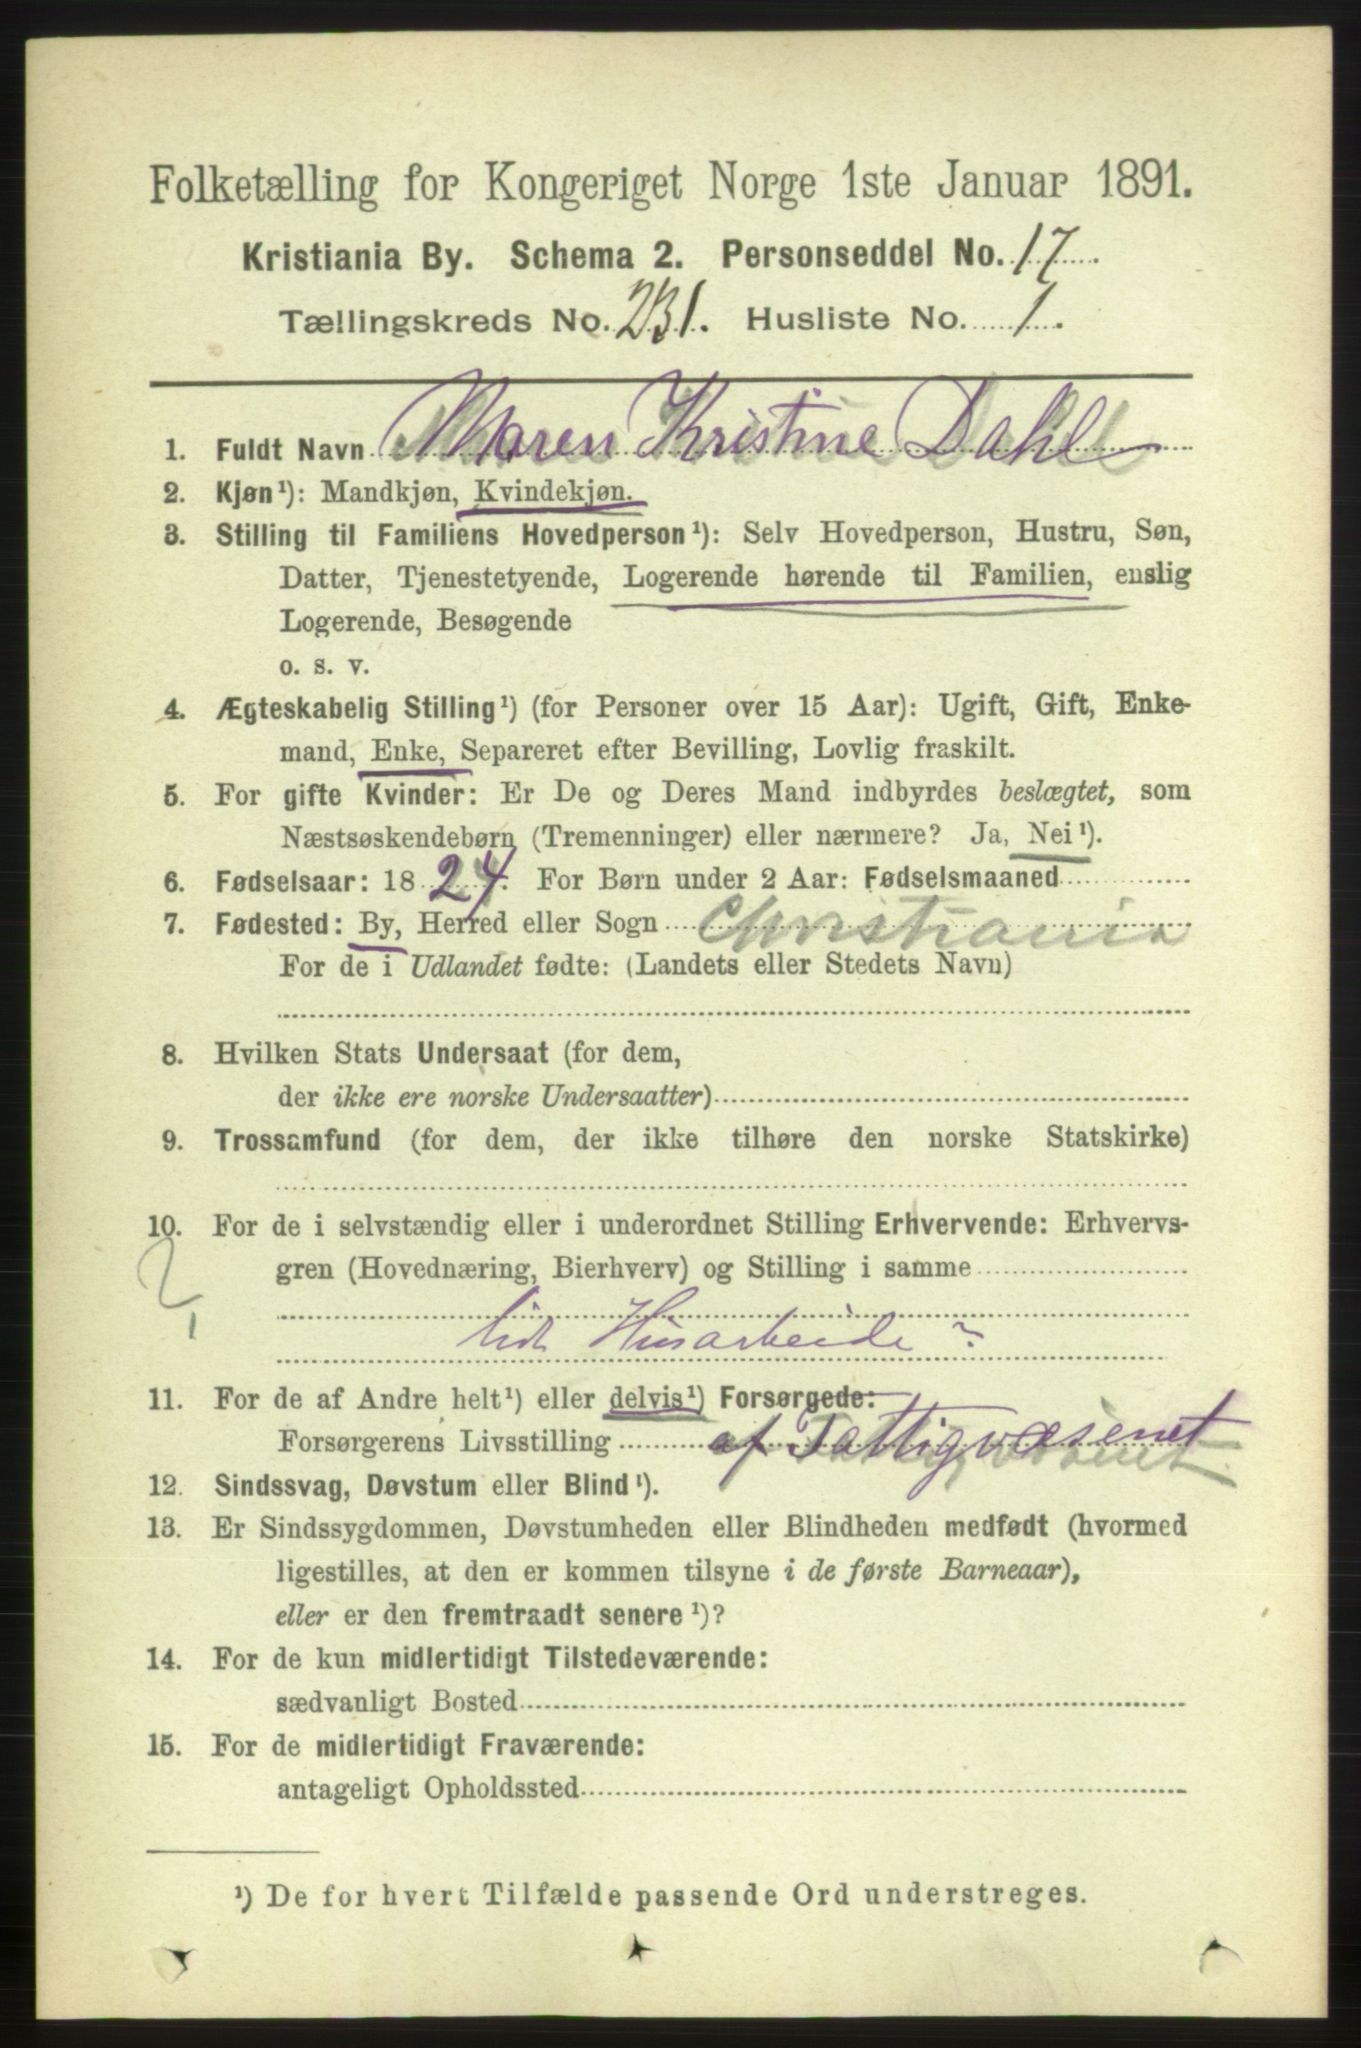 Folketælling for Kongeriget Norge 1ste Januar 1891.
Kristiania By. Schema 2. Personseddel No. 17
Tællingskreds No. 231. Husliste No. 1.
1. Fuldt Navn Maren Kristine Dahl
2. Kjøn¹): Mandkjøn, Kvindekjøn.
3. Stilling til Familiens Hovedperson¹): Selv Hovedperson, Hustru, Søn,
Datter, Tjenestetyende, Logerende hørende til Familien, enslig
Logerende, Besøgende
o. s. v.
4. Ægteskabelig Stilling¹) (for Personer over 15 Aar): Ugift, Gift, Enke-
mand, Enke, Separeret efter Bevilling, Lovlig fraskilt.
5. For gifte Kvinder: Er De og Deres Mand indbyrdes beslægtet, som
Næstsøskendebørn (Tremenninger) eller nærmere? Ja, Nei¹).
6. Fødselsaar: 1824. For Børn under 2 Aar: Fødselsmaaned
7. Fødested: By, Herred eller Sogn Christiania
For de i Udlandet fødte: (Landets eller Stedets Navn)
8. Hvilken Stats Undersaat (for dem,
der ikke ere norske Undersaatter)
9. Trossamfund (for dem, der ikke tilhøre den norske Statskirke)
10. For de i selvstændig eller i underordnet Stilling Erhvervende: Erhvervs-
gren (Hovednæring, Bierhverv) og Stilling i samme
lidt Husarbeide ?
11. For de af Andre helt¹) eller delvis¹) Forsørgede:
Forsørgerens Livsstilling af Fattigvæsenet
12. Sindssvag, Døvstum eller Blind¹).
13. Er Sindssygdommen, Døvstumheden eller Blindheden medfødt (hvormed
ligestilles, at den er kommen tilsyne i de første Barneaar),
eller er den fremtraadt senere¹)?
14. For de kun midlertidigt Tilstedeværende:
sædvanligt Bosted
15. For de midlertidigt Fraværende:
antageligt Opholdssted
¹) De for hvert Tilfælde passende Ord understreges.